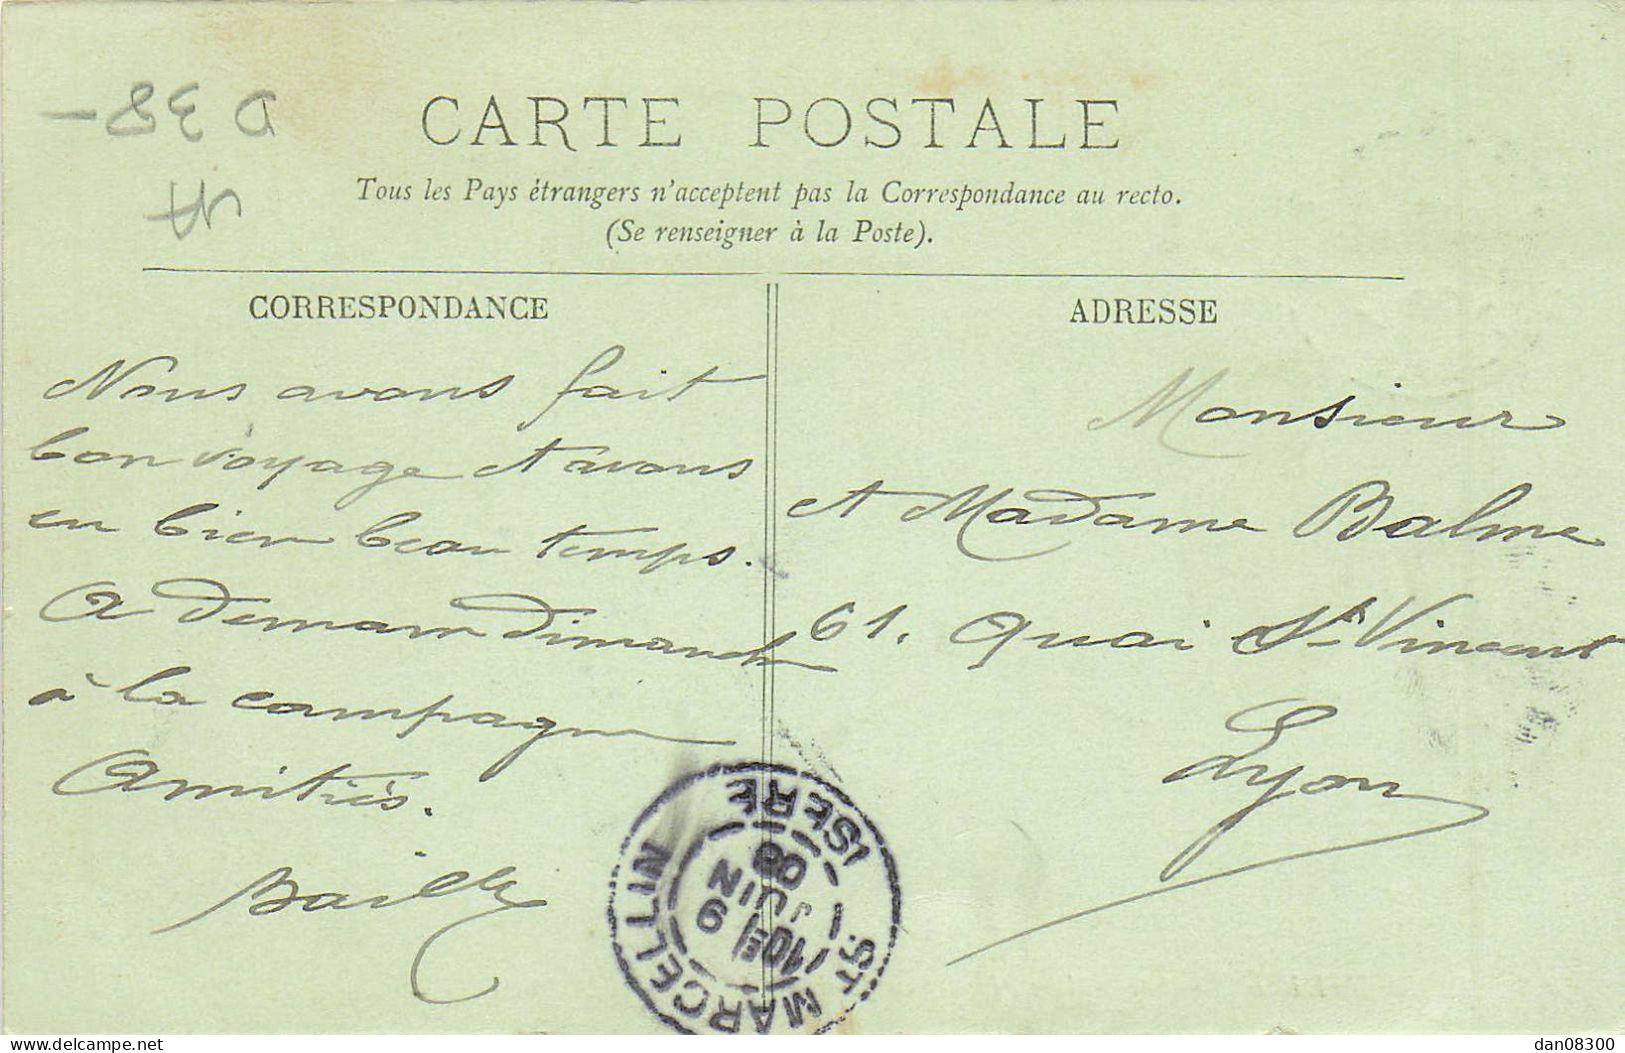 D 38 -
CARTE POSTALE
Tous les Pays étrangers n'acceptent pas la Correspondance au recto.
(Se renseigner à la Poste).
CORRESPONDANCE
Nous avons fait
bon voyage et avons
eu bien beau temps.
A demain dimanche
à la campagne
Amitiés.
Bailly
ADRESSE
Monsieur
et Madame Balme
61. Quai St Vincent
Lyon
ST MARCELLIN
ISÈRE
10
6
JUIN
08
www.delcampe.net
dan08300